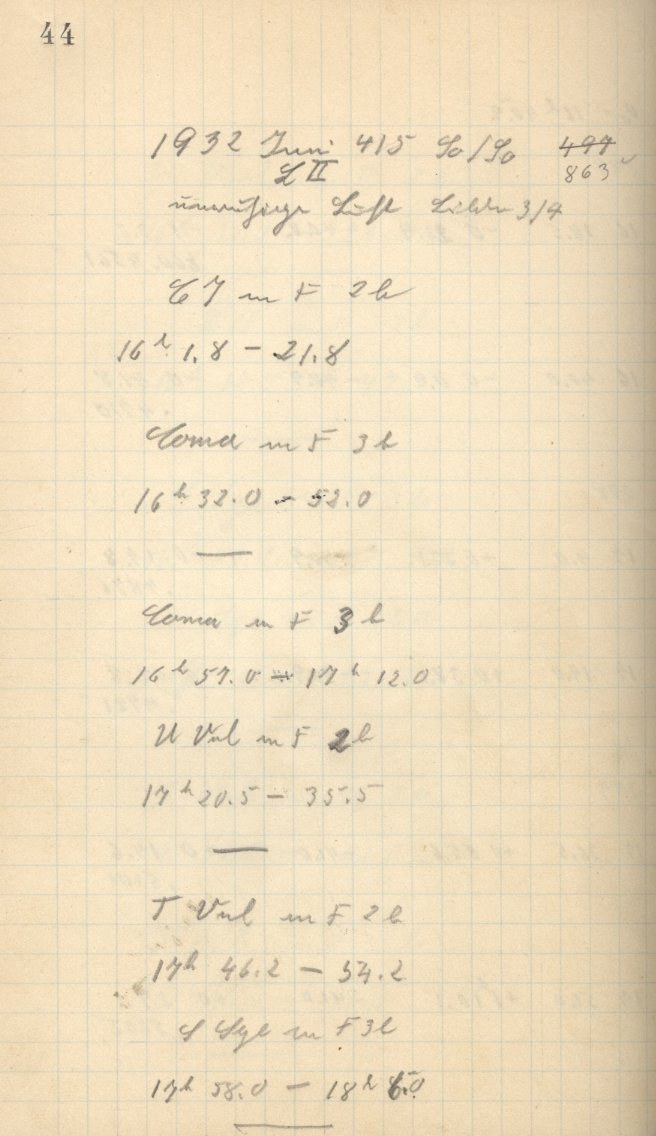 44
1932 Juni 4/5 So/So 497
L II 863
unruhige Luft Bilder 3/4
m F 2 b
16 h 1.8 - 21.8
Coma m F 3 b
16 h 32.0 - 52.0
Coma m F 3 b
16 h 57.0 - 17 h 12.0
U Vul m F 2 b
17 h 20.5 - 35.5
T Vul m F 2 b
17 h 46.2 - 54.2
S Sge m F 3 b
17 h 58.0 - 18 h 6.0